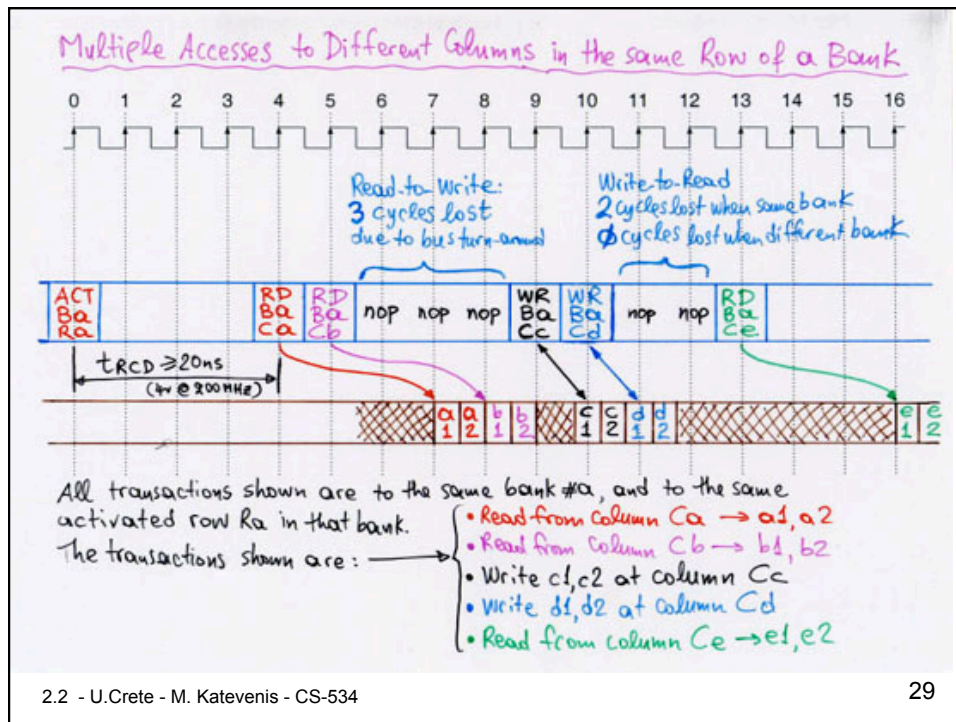 Multiple Accesses to Different Columns in the same Row of a Bank
0 1 2 3 4 5 6 7 8 9 10 11 12 13 14 15 16
Read-to-Write:
3 cycles lost
due to bus turn-around
Write-to-Read
2 cycles lost when same bank
0 cycles lost when different bank
ACT
Ba
Ra
RD
Ba
Ca
RD
Ba
Cb
nop nop nop
WR
Ba
Cc
WR
Ba
Cd
nop nop
RD
Ba
Ce
tRCD ≥20ns
(4~ @ 200MHz)
a1 a2 b1 b2 c1 c2 d1 d2 e1 e2
All transactions shown are to the same bank #a, and to the same
activated row Ra in that bank.
The transactions shown are:
• Read from column Ca → a1, a2
• Read from column Cb → b1, b2
• Write c1,c2 at column Cc
• Write d1,d2 at column Cd
• Read from column Ce → e1,e2
2.2 - U.Crete - M. Katevenis - CS-534
29